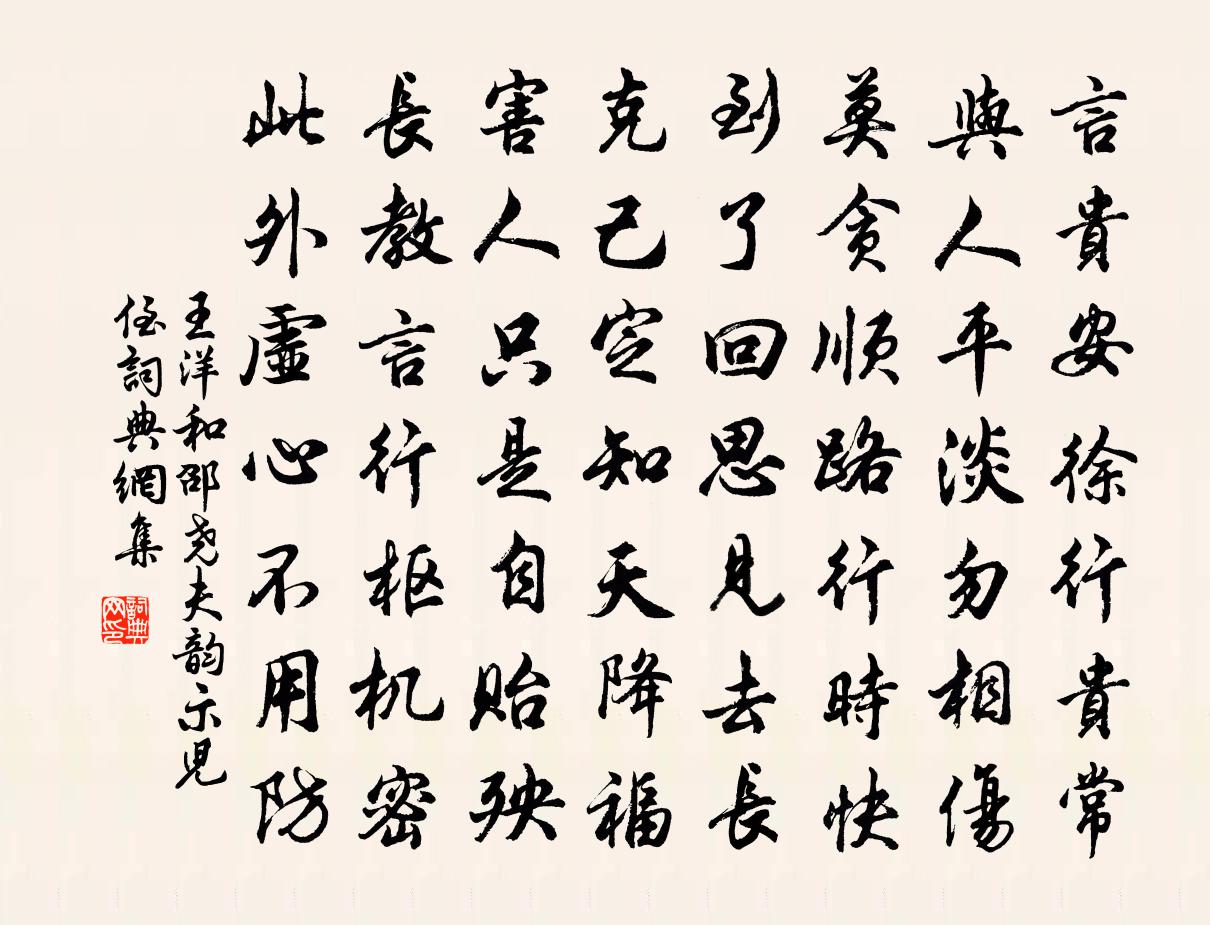 言貴安徐行貴常
與人平淡勿相傷
莫贪順路行時快
到了回思見去長
克己定知天降福
害人只是自貽殃
長教言行枢机密
此外虛心不用防
王洋和邵尧夫韵示児
侄詞典網集
詞典
网印